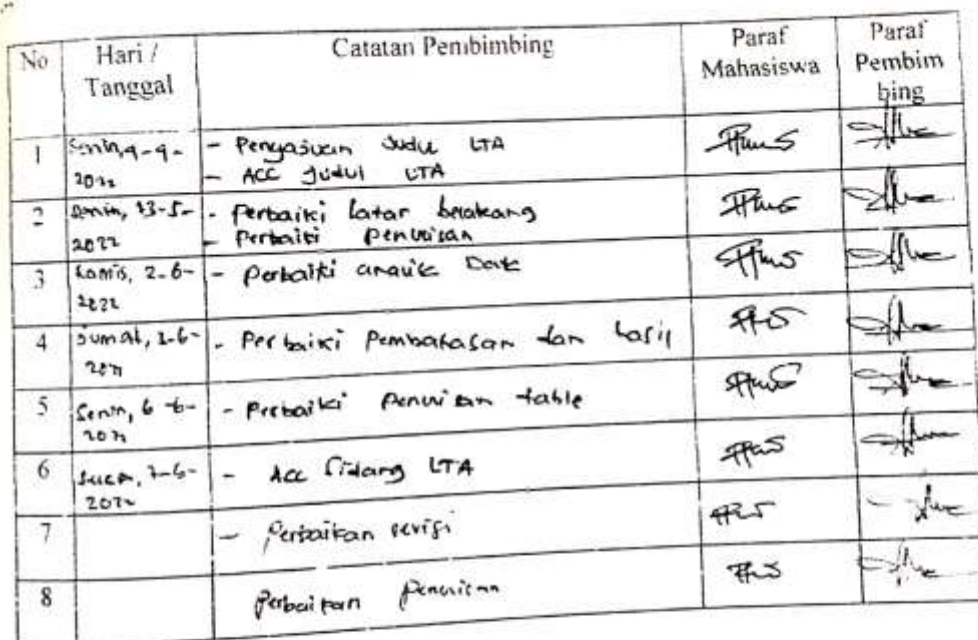 No Hari / Tanggal Catatan Pembimbing Paraf Mahasiswa Paraf Pembim bing
1 Senin, 4-4-2022 - Pengajuan Judul LTA
- ACC Judul LTA
2 Senin, 23-5-2022 - Perbaiki latar belakang
- Perbaiki Penulisan
3 Kamis, 2-6-2022 - Perbaiki analisis Data
4 Jumat, 3-6- - Perbaiki Pembahasan dan hasil
5 Senin, 6-6- - Perbaiki Penulisan table
6 7-6-2022 - Acc Sidang LTA
7 - Perbaikan revisi
8 Perbaikan Penulisan